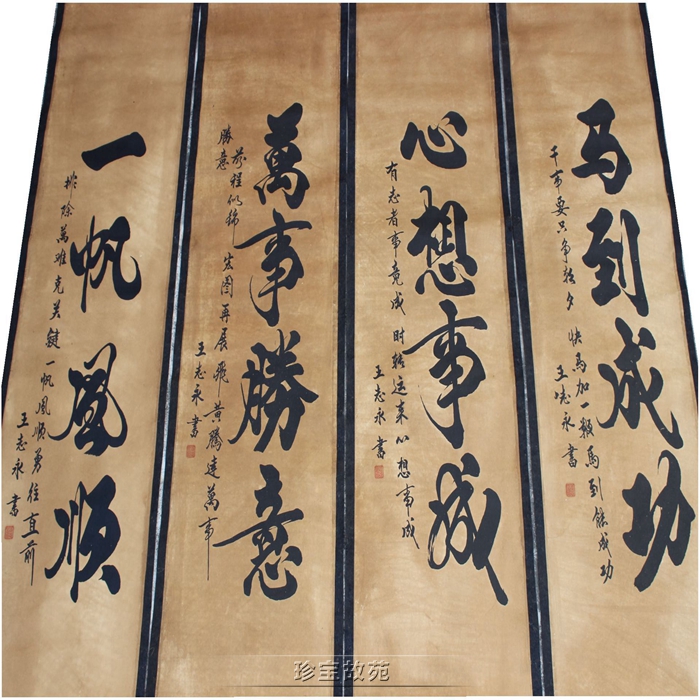 马到成功
干事要只争朝夕 快马加一鞭馬到能成功
王志永書
心想事成
有志者事竟成 时转运来心想事成
王志永書
萬事勝意
前程似锦 宏图再展飛黄腾達萬事
勝意
王志永書
一帆風順
排除萬难克关键一帆風順勇往直前
王志永書
珍宝故苑